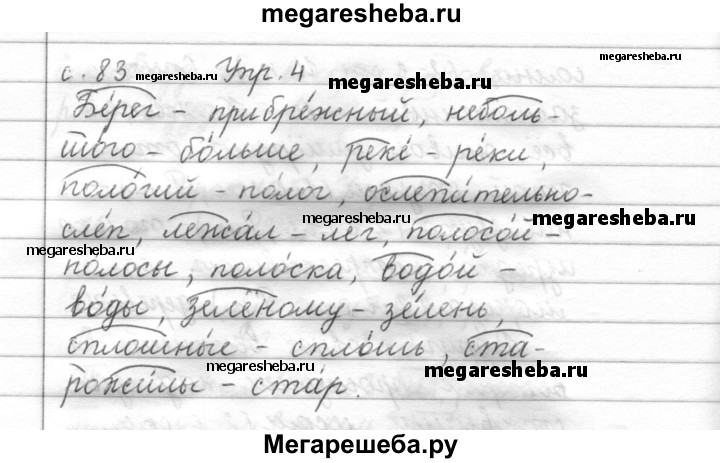 megaresheba.ru
megaresheba.ru
с. 83 megaresheba.ru Упр. 4 megaresheba.ru
Бе́рег – прибре́жный, неболь-
шо́го – бо́льше, реке́ – ре́ки,
поло́гий – по́лог, ослепи́тельно-
megaresheba.ru megaresheba.ru
сле́п, лежа́л – лег, полосо́й –
megaresheba.ru
полосы, поло́ска, водо́й –
во́ды, зелёному – зе́лень,
сплошны́е – спло́шь, ста-
megaresheba.ru megaresheba.ru
рожи́лы – ста́р.
Мегарешеба.ру